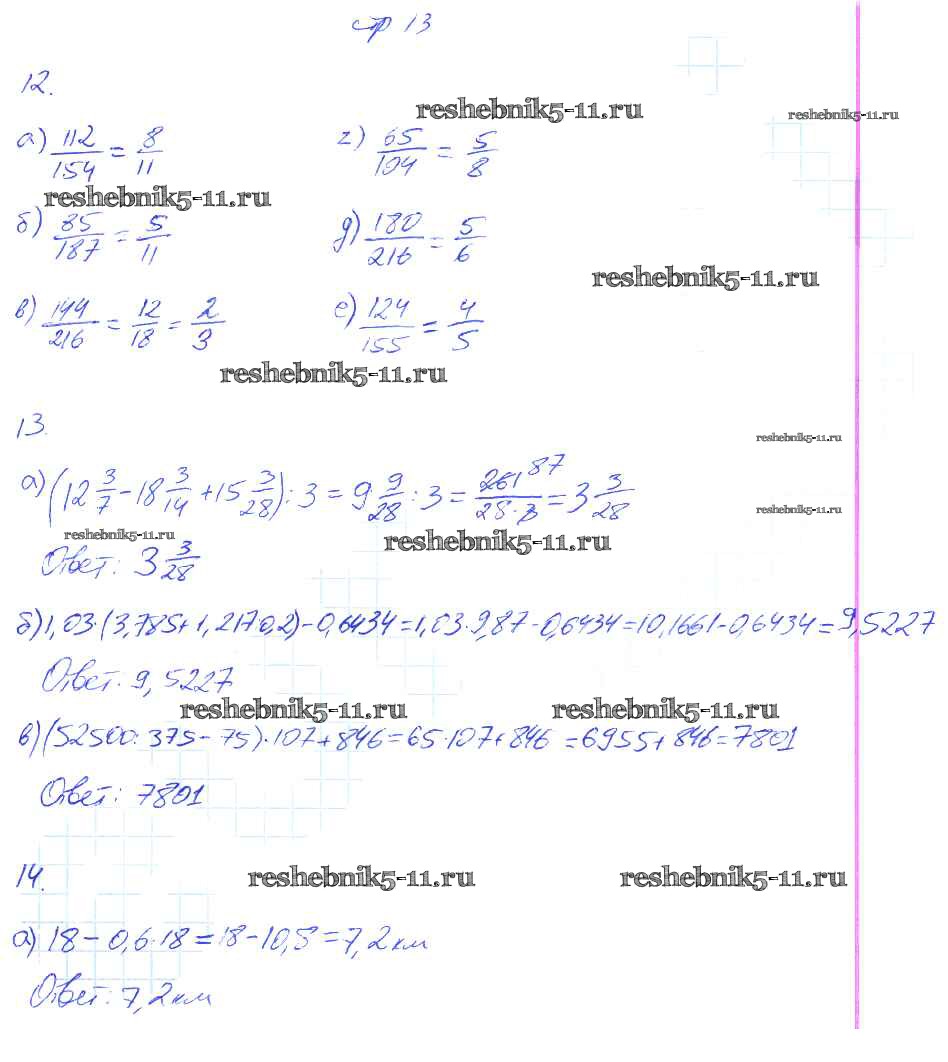 стр 13
12.
reshebnik5-11.ru
reshebnik5-11.ru
а) 112/154 = 8/11 г) 65/104 = 5/8
reshebnik5-11.ru
б) 85/187 = 5/11 д) 180/216 = 5/6
reshebnik5-11.ru
в) 144/216 = 12/18 = 2/3 е) 124/155 = 4/5
reshebnik5-11.ru
13.
reshebnik5-11.ru
а) (12 3/7 - 18 3/14 + 15 3/28) : 3 = 9 9/28 : 3 = 261 87/28·3 = 3 3/28
reshebnik5-11.ru
reshebnik5-11.ru
reshebnik5-11.ru
Ответ: 3 3/28
б) 1,03·(3,785+1,217:0,2)-0,6434=1,03·9,87-0,6434=10,1661-0,6434=9,5227
Ответ: 9,5227
reshebnik5-11.ru
reshebnik5-11.ru
в) (52500:375-75)·107+846=65·107+846=6955+846=7801
Ответ: 7801
14.
reshebnik5-11.ru
reshebnik5-11.ru
а) 18-0,6·18=18-10,8=7,2км
Ответ: 7,2км